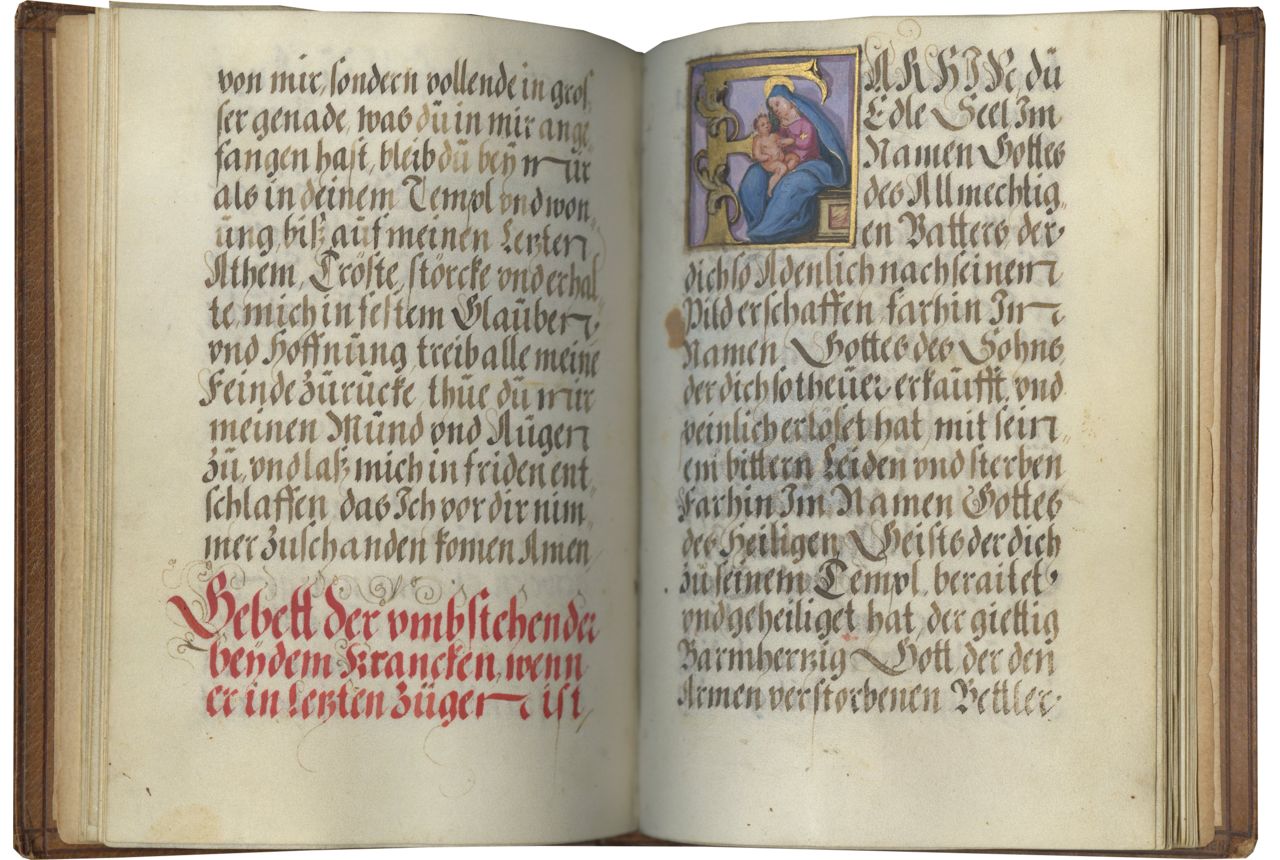 von mir, sondern vollende in gros,
ser genade, was dü in mir ange,
fangen hast, bleib dü beÿ mir
als in deinem Templ vnd won,
üng, biß aüf meinen Letzten
Athem, Tröste, störcke vnd erhal,
te, mich in festem Glaüben,
vnd Hoffnüng treib alle meine
Feinde zürücke, thüe dü mir
meinen Münd vnd Aügen
zü, vnd laß mich in friden ent,
schlaffen, das Ich vor dir nim,
mer züschanden komen Amen
Gebett der vmbstehenden
beÿ dem Krancken, wenn
er in Letzten Zügen ist,
FARHIN, dü
Edle Seel Im
Namen Gottes
des Allmechtig,
en Vatters, der
dich so Adenlich nach seinem
Pild erschaffen farhin Im
Namen Gottes des Sohns,
der dich so theüer erkaüfft, vnd
peinlich erlöset hat, mit sein,
em bittern Leiden vnd sterben
Farhin Im Namen Gottes
des Heiligen Geists der dich
zü seinem Templ, beraitet
vnd geheiliget hat, der giettig
Barmhertzig Gott der den
Armen verstorbenen Bettler